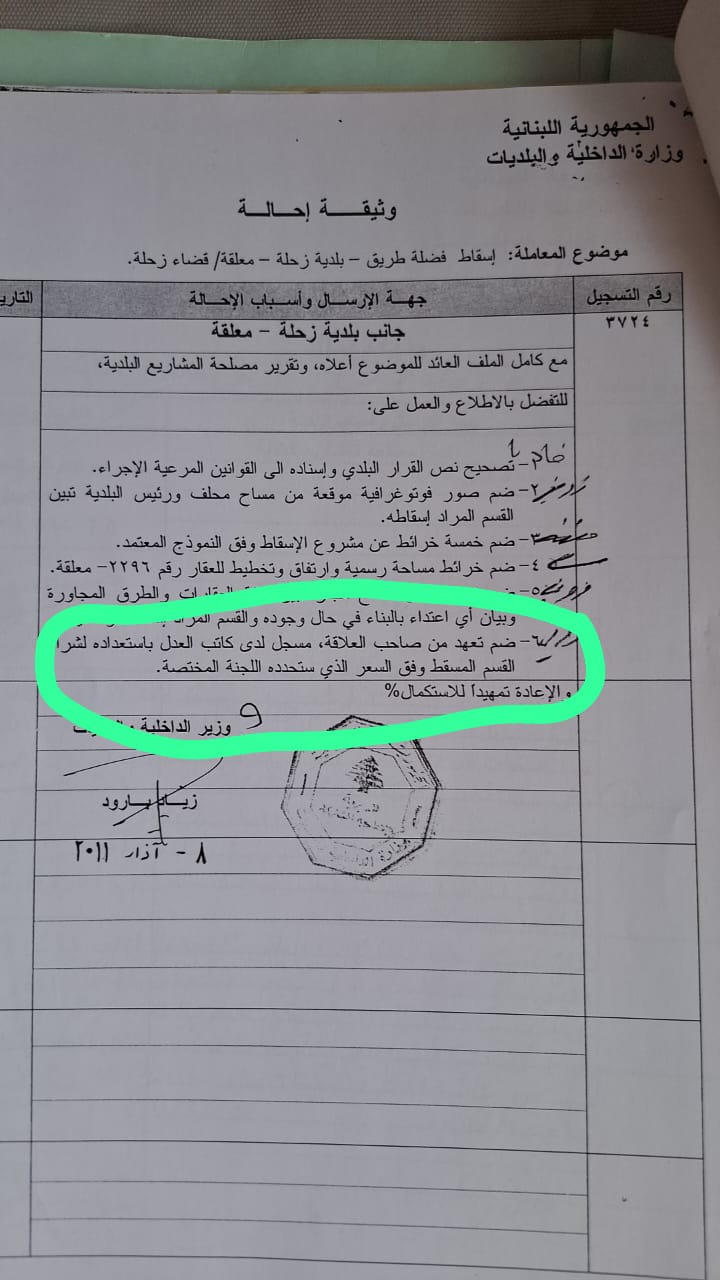 الجمهورية اللبنانية
وزارة الداخلية والبلديات
وثيقة إحالة
موضوع المعاملة: إسقاط فضلة طريق – بلدية زحلة – معلقة/ قضاء زحلة.
رقم التسجيل
جهة الإرسال وأسباب الإحالة
التاري
٣٧٢٤
جانب بلدية زحلة – معلقة
مع كامل الملف العائد للموضوع أعلاه، وتقرير مصلحة المشاريع البلدية،
للتفضل بالاطلاع والعمل على:
تصحيح نص القرار البلدي وإسناده الى القوانين المرعية الإجراء.
٢- ضم صور فوتوغرافية موقعة من مساح محلف ورئيس البلدية تبين
القسم المراد إسقاطه.
٣- ضم خمسة خرائط عن مشروع الإسقاط وفق النموذج المعتمد.
٤- ضم خرائط مساحة رسمية وارتفاق وتخطيط للعقار رقم ٢٢٩٦- معلقة.
٥- العقارات والطرق المجاورة
وبيان أي اعتداء بالبناء في حال وجوده والقسم
٦- ضم تعهد من صاحب العلاقة، مسجل لدى كاتب العدل باستعداده لشرا
القسم المسقط وفق السعر الذي ستحدده اللجنة المختصة.
والإعادة تمهيداً للاستكمال%
وزير الداخلية
زياد بارود
٨ - آذار ٢٠١١